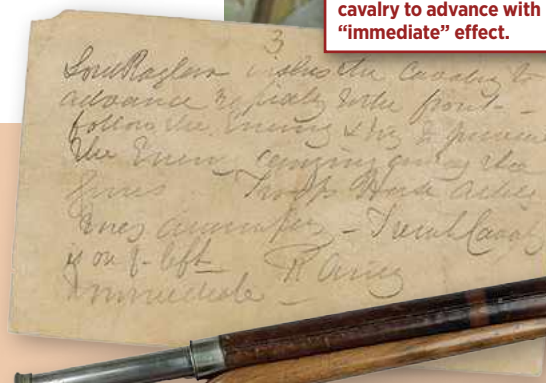 cavalry to advance with
“immediate” effect.
3
Lord Raglan wishes the Cavalry to
advance rapidly to the front -
follow the Enemy & try to prevent
the Enemy carrying away the
guns - Troop Horse
may accompany - French
is on left
R Airey
Immediate -